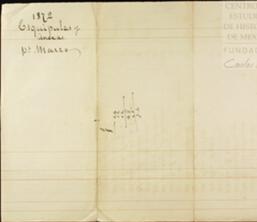 1872
Esquipulas y
pr. Marzo
CENTRO
ESTUD
DE HISTO
DE MEX
FUNDA
Carlos